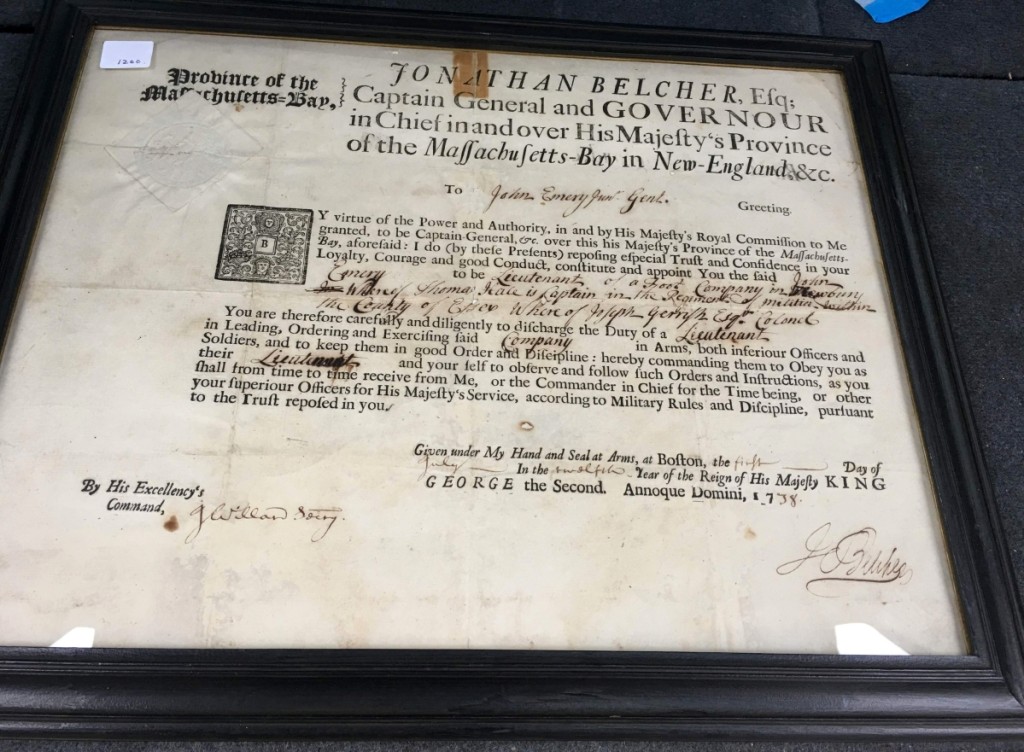 1240
Province of the
Massachusetts-Bay,
JONATHAN BELCHER, Eſq;
Captain General and GOVERNOUR
in Chief in and over His Majeſty's Province
of the Maſſachuſetts-Bay in New-England, &c.
To John Emery Junr. Gent. Greeting.
BY virtue of the Power and Authority, in and by His Majeſty's Royal Commiſſion to Me
granted, to be Captain-General, &c. over this his Majeſty's Province of the Maſſachuſetts-
Bay, aforeſaid: I do (by theſe Preſents) repoſing eſpecial Truſt and Confidence in your
Loyalty, Courage and good Conduct, conſtitute and appoint You the ſaid John
Emery to be Lieutenant of a Foot Company in Newbury
Whereof Thomas Hale is Captain in the Regiment of militia within
the County of Essex Whereof Joseph Gerrish Esqr. Colonel
You are therefore carefully and diligently to diſcharge the Duty of a Lieutenant
in Leading, Ordering and Exerciſing ſaid Company in Arms, both inferiour Officers and
Soldiers, and to keep them in good Order and Diſcipline: hereby commanding them to Obey you as
their Lieutenant and your ſelf to obſerve and follow ſuch Orders and Inſtructions, as you
ſhall from time to time receive from Me, or the Commander in Chief for the Time being, or other
your ſuperiour Officers for His Majeſty's Service, according to Military Rules and Diſcipline, purſuant
to the Truſt repoſed in you.
Given under My Hand and Seal at Arms, at Boſton, the first Day of
July In the twelfth Year of the Reign of His Majeſty KING
GEORGE the Second. Annoque Domini, 1738.
By His Excellency's
Command,
J Willard Secry.
J Belcher